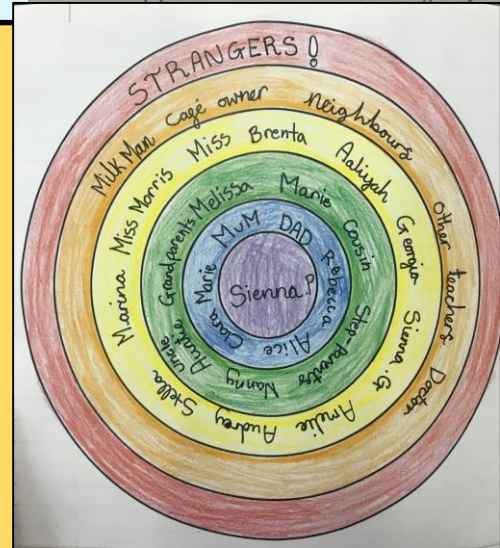 STRANGERS!
Milk Man Cafe owner neighbours Other teachers Doctor
Marina Miss Morris Miss Brenta Aaliyah Georgia Sienna.G Amelie Audrey Stella
Uncle Grandparents Melissa Marie Cousin Step-parents Nanny Auntie
Clara Marie MuM DAD Rebecca Alice
Sienna.P